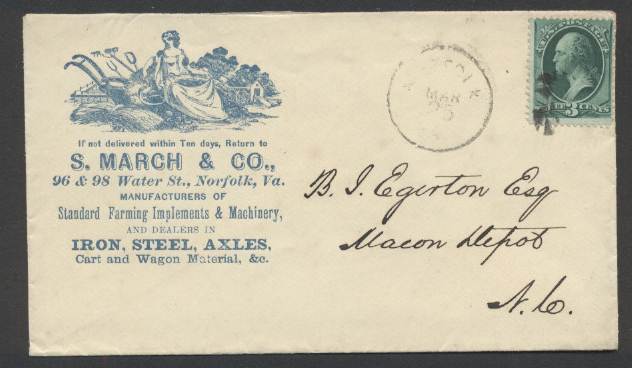 If not delivered within Ten days, Return to
S. MARCH & CO.,
96 & 98 Water St., Norfolk, Va.
MANUFACTURERS OF
Standard Farming Implements & Machinery,
AND DEALERS IN
IRON, STEEL, AXLES,
Cart and Wagon Material, &c.
MAR
25
U.S. POSTAGE
3 CENTS
B. J. Egerton Esq
Macon Depot
N. C.